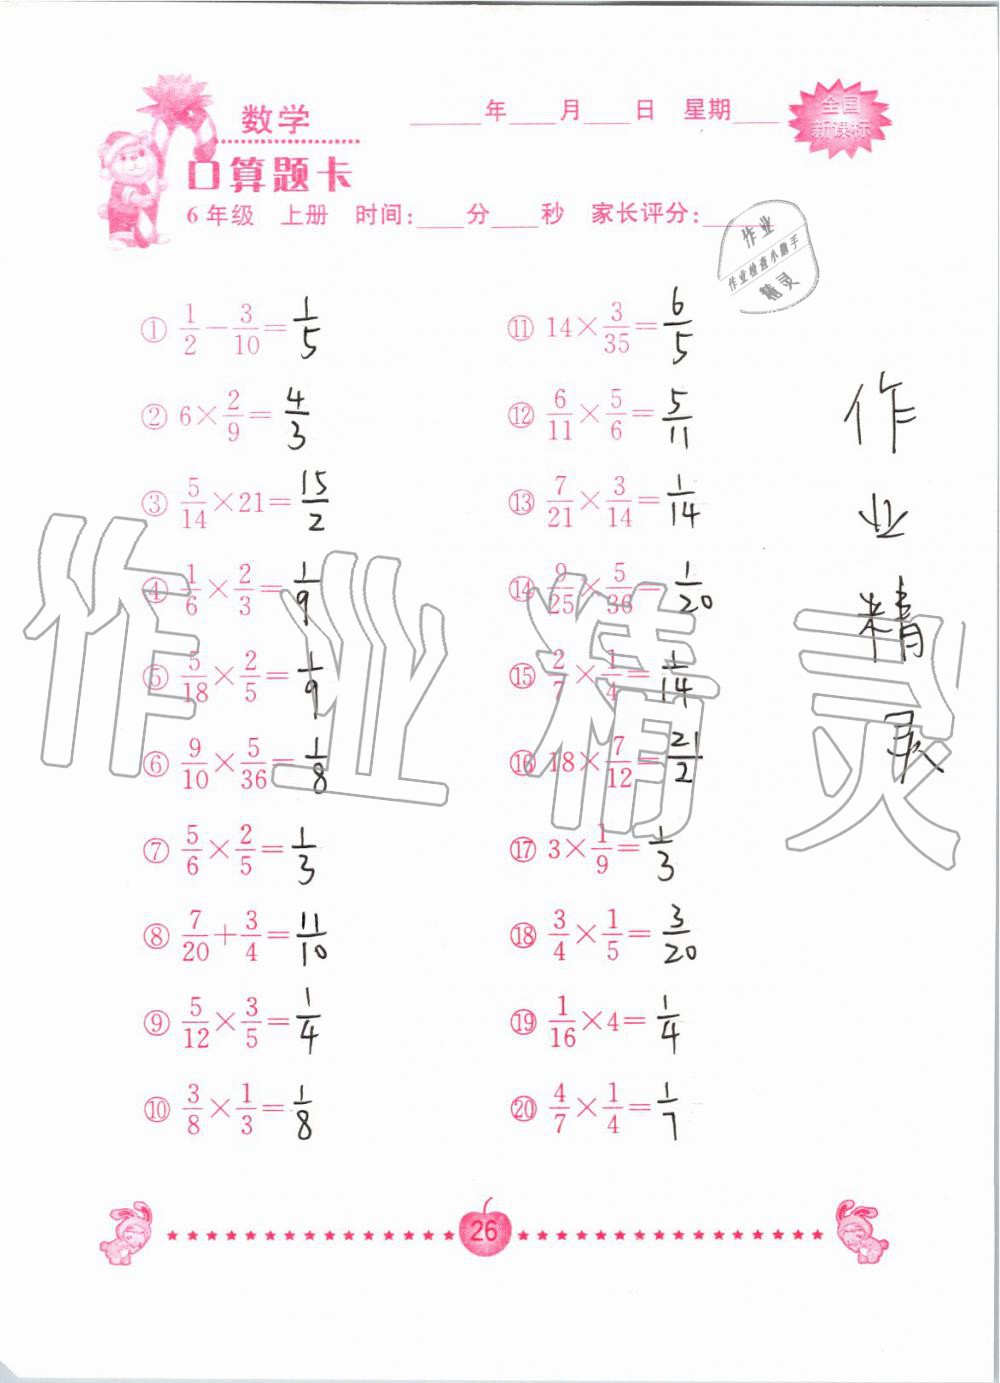 数学
____年____月____日 星期____
全国
新课标
口算题卡
6年级 上册 时间:____分____秒 家长评分:____
作业
作业检查小助手
精灵
① 1/2 − 3/10 = 1/5
② 6 × 2/9 = 4/3
③ 5/14 × 21 = 15/2
④ 1/6 × 2/3 = 1/9
⑤ 5/18 × 2/5 = 1/9
⑥ 9/10 × 5/36 = 1/8
⑦ 5/6 × 2/5 = 1/3
⑧ 7/20 + 3/4 = 11/10
⑨ 5/12 × 3/5 = 1/4
⑩ 3/8 × 1/3 = 1/8
⑪ 14 × 3/35 = 6/5
⑫ 6/11 × 5/6 = 5/11
⑬ 7/21 × 3/14 = 1/14
⑭ 9/25 × 5/36 = 1/20
⑮ 2/7 × 1/4 = 1/14
⑯ 18 × 7/12 = 21/2
⑰ 3 × 1/9 = 1/3
⑱ 3/4 × 1/5 = 3/20
⑲ 1/16 × 4 = 1/4
⑳ 4/7 × 1/4 = 1/7
作业精灵
作业精灵
26